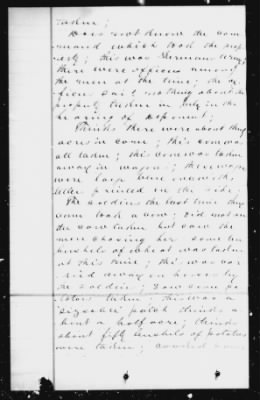 taken;
Does not know the com-
mand which took the prop-
erty; this was Sherman's Army;
there were officers among
the men at the time; the of-
ficers said nothing about the
property taken in
hearing of deponent;
Thinks there were about
acres in corn; this corn was
all taken; this corn was taken
away in wagons; these wagons
were large
letter printed in the side;
The soldiers the last time they
came took a cow; did not see
the cow taken but saw the
men chasing her. some ten
bushels of wheat was taken
at this time; this was car-
ried away on horses by
the soldiers; saw some po-
tatoes taken; this was a
"sizeable" patch thinks a-
bout a half acre; thinks
about fifty bushels of potatoes
were taken;